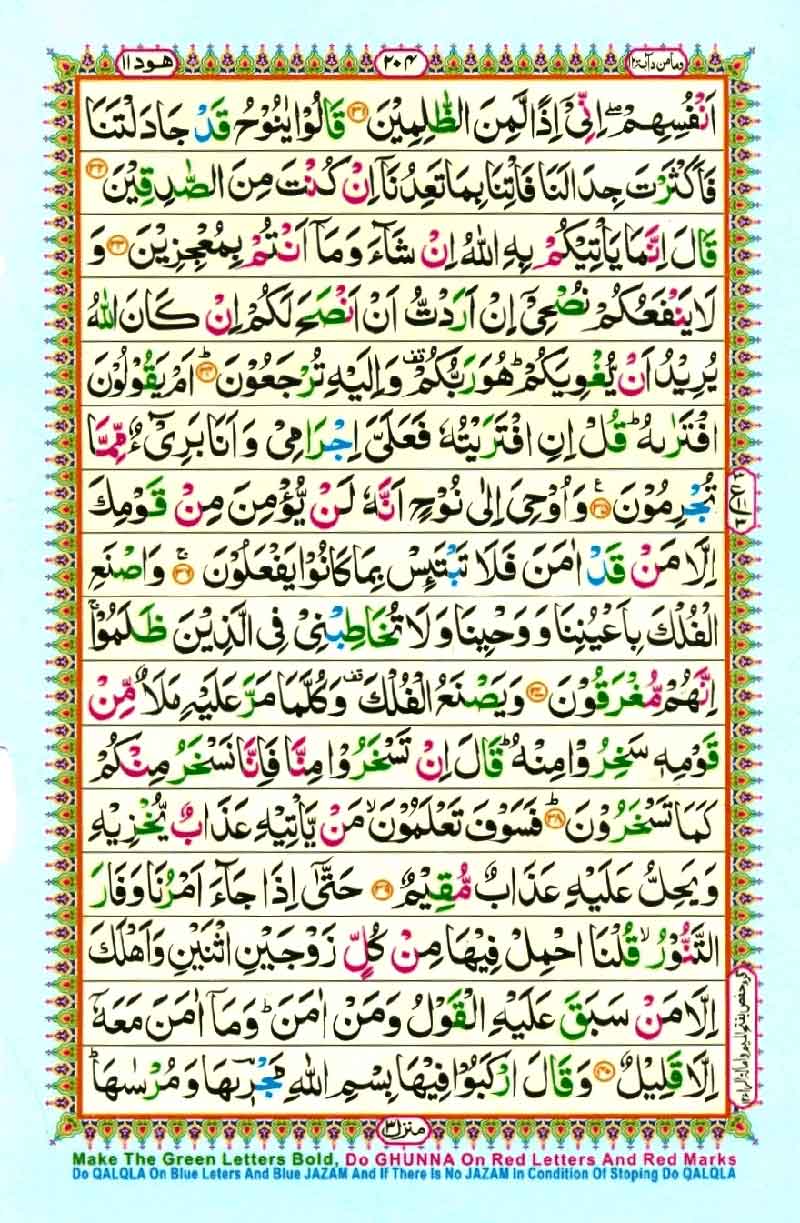 هود ١١ ٢٠٤ وما من دآبة ١٢
اَنْفُسِهِمْ ۖۚ اِنِّیْۤ اِذًا لَّمِنَ الظّٰلِمِیْنَ ﴿۳۱﴾ قَالُوْا یٰنُوْحُ قَدْ جَادَلْتَنَا
فَاَكْثَرْتَ جِدَالَنَا فَاْتِنَا بِمَا تَعِدُنَاۤ اِنْ كُنْتَ مِنَ الصّٰدِقِیْنَ ﴿۳۲﴾
قَالَ اِنَّمَا یَاْتِیْكُمْ بِهِ اللّٰهُ اِنْ شَآءَ وَمَاۤ اَنْتُمْ بِمُعْجِزِیْنَ ﴿۳۳﴾ وَ
لَا یَنْفَعُكُمْ نُصْحِیْۤ اِنْ اَرَدْتُّ اَنْ اَنْصَحَ لَكُمْ اِنْ كَانَ اللّٰهُ
یُرِیْدُ اَنْ یُّغْوِیَكُمْ ؕ هُوَ رَبُّكُمْ ۫ وَاِلَیْهِ تُرْجَعُوْنَ ﴿۳۴﴾ؕ اَمْ یَقُوْلُوْنَ
افْتَرٰىهُ ؕ قُلْ اِنِ افْتَرَیْتُهٗ فَعَلَیَّ اِجْرَامِیْ وَاَنَا بَرِیْٓءٌ مِّمَّا
تُجْرِمُوْنَ ﴿۳۵﴾ وَاُوْحِیَ اِلٰی نُوْحٍ اَنَّهٗ لَنْ یُّؤْمِنَ مِنْ قَوْمِكَ
اِلَّا مَنْ قَدْ اٰمَنَ فَلَا تَبْتَىِٕسْ بِمَا كَانُوْا یَفْعَلُوْنَ ﴿۳۶﴾ۚ وَاصْنَعِ
الْفُلْكَ بِاَعْیُنِنَا وَوَحْیِنَا وَلَا تُخَاطِبْنِیْ فِی الَّذِیْنَ ظَلَمُوْا ۚ
اِنَّهُمْ مُّغْرَقُوْنَ ﴿۳۷﴾ وَیَصْنَعُ الْفُلْكَ ۫ وَكُلَّمَا مَرَّ عَلَیْهِ مَلَاٌ مِّنْ
قَوْمِهٖ سَخِرُوْا مِنْهُ ؕ قَالَ اِنْ تَسْخَرُوْا مِنَّا فَاِنَّا نَسْخَرُ مِنْكُمْ
كَمَا تَسْخَرُوْنَ ﴿۳۸﴾ؕ فَسَوْفَ تَعْلَمُوْنَ ۙ مَنْ یَّاْتِیْهِ عَذَابٌ یُّخْزِیْهِ
وَیَحِلُّ عَلَیْهِ عَذَابٌ مُّقِیْمٌ ﴿۳۹﴾ حَتّٰۤی اِذَا جَآءَ اَمْرُنَا وَفَارَ
التَّنُّوْرُ ۙ قُلْنَا احْمِلْ فِیْهَا مِنْ كُلٍّ زَوْجَیْنِ اثْنَیْنِ وَاَهْلَكَ
اِلَّا مَنْ سَبَقَ عَلَیْهِ الْقَوْلُ وَمَنْ اٰمَنَ ؕ وَمَاۤ اٰمَنَ مَعَهٗۤ
اِلَّا قَلِیْلٌ ﴿۴۰﴾ وَقَالَ ارْكَبُوْا فِیْهَا بِسْمِ اللّٰهِ مَجْرٖىهَا وَمُرْسٰىهَا ؕ
منزل ٣
Make The Green Letters Bold, Do GHUNNA On Red Letters And Red Marks
Do QALQLA On Blue Leters And Blue JAZAM And If There Is No JAZAM In Condition Of Stoping Do QALQLA